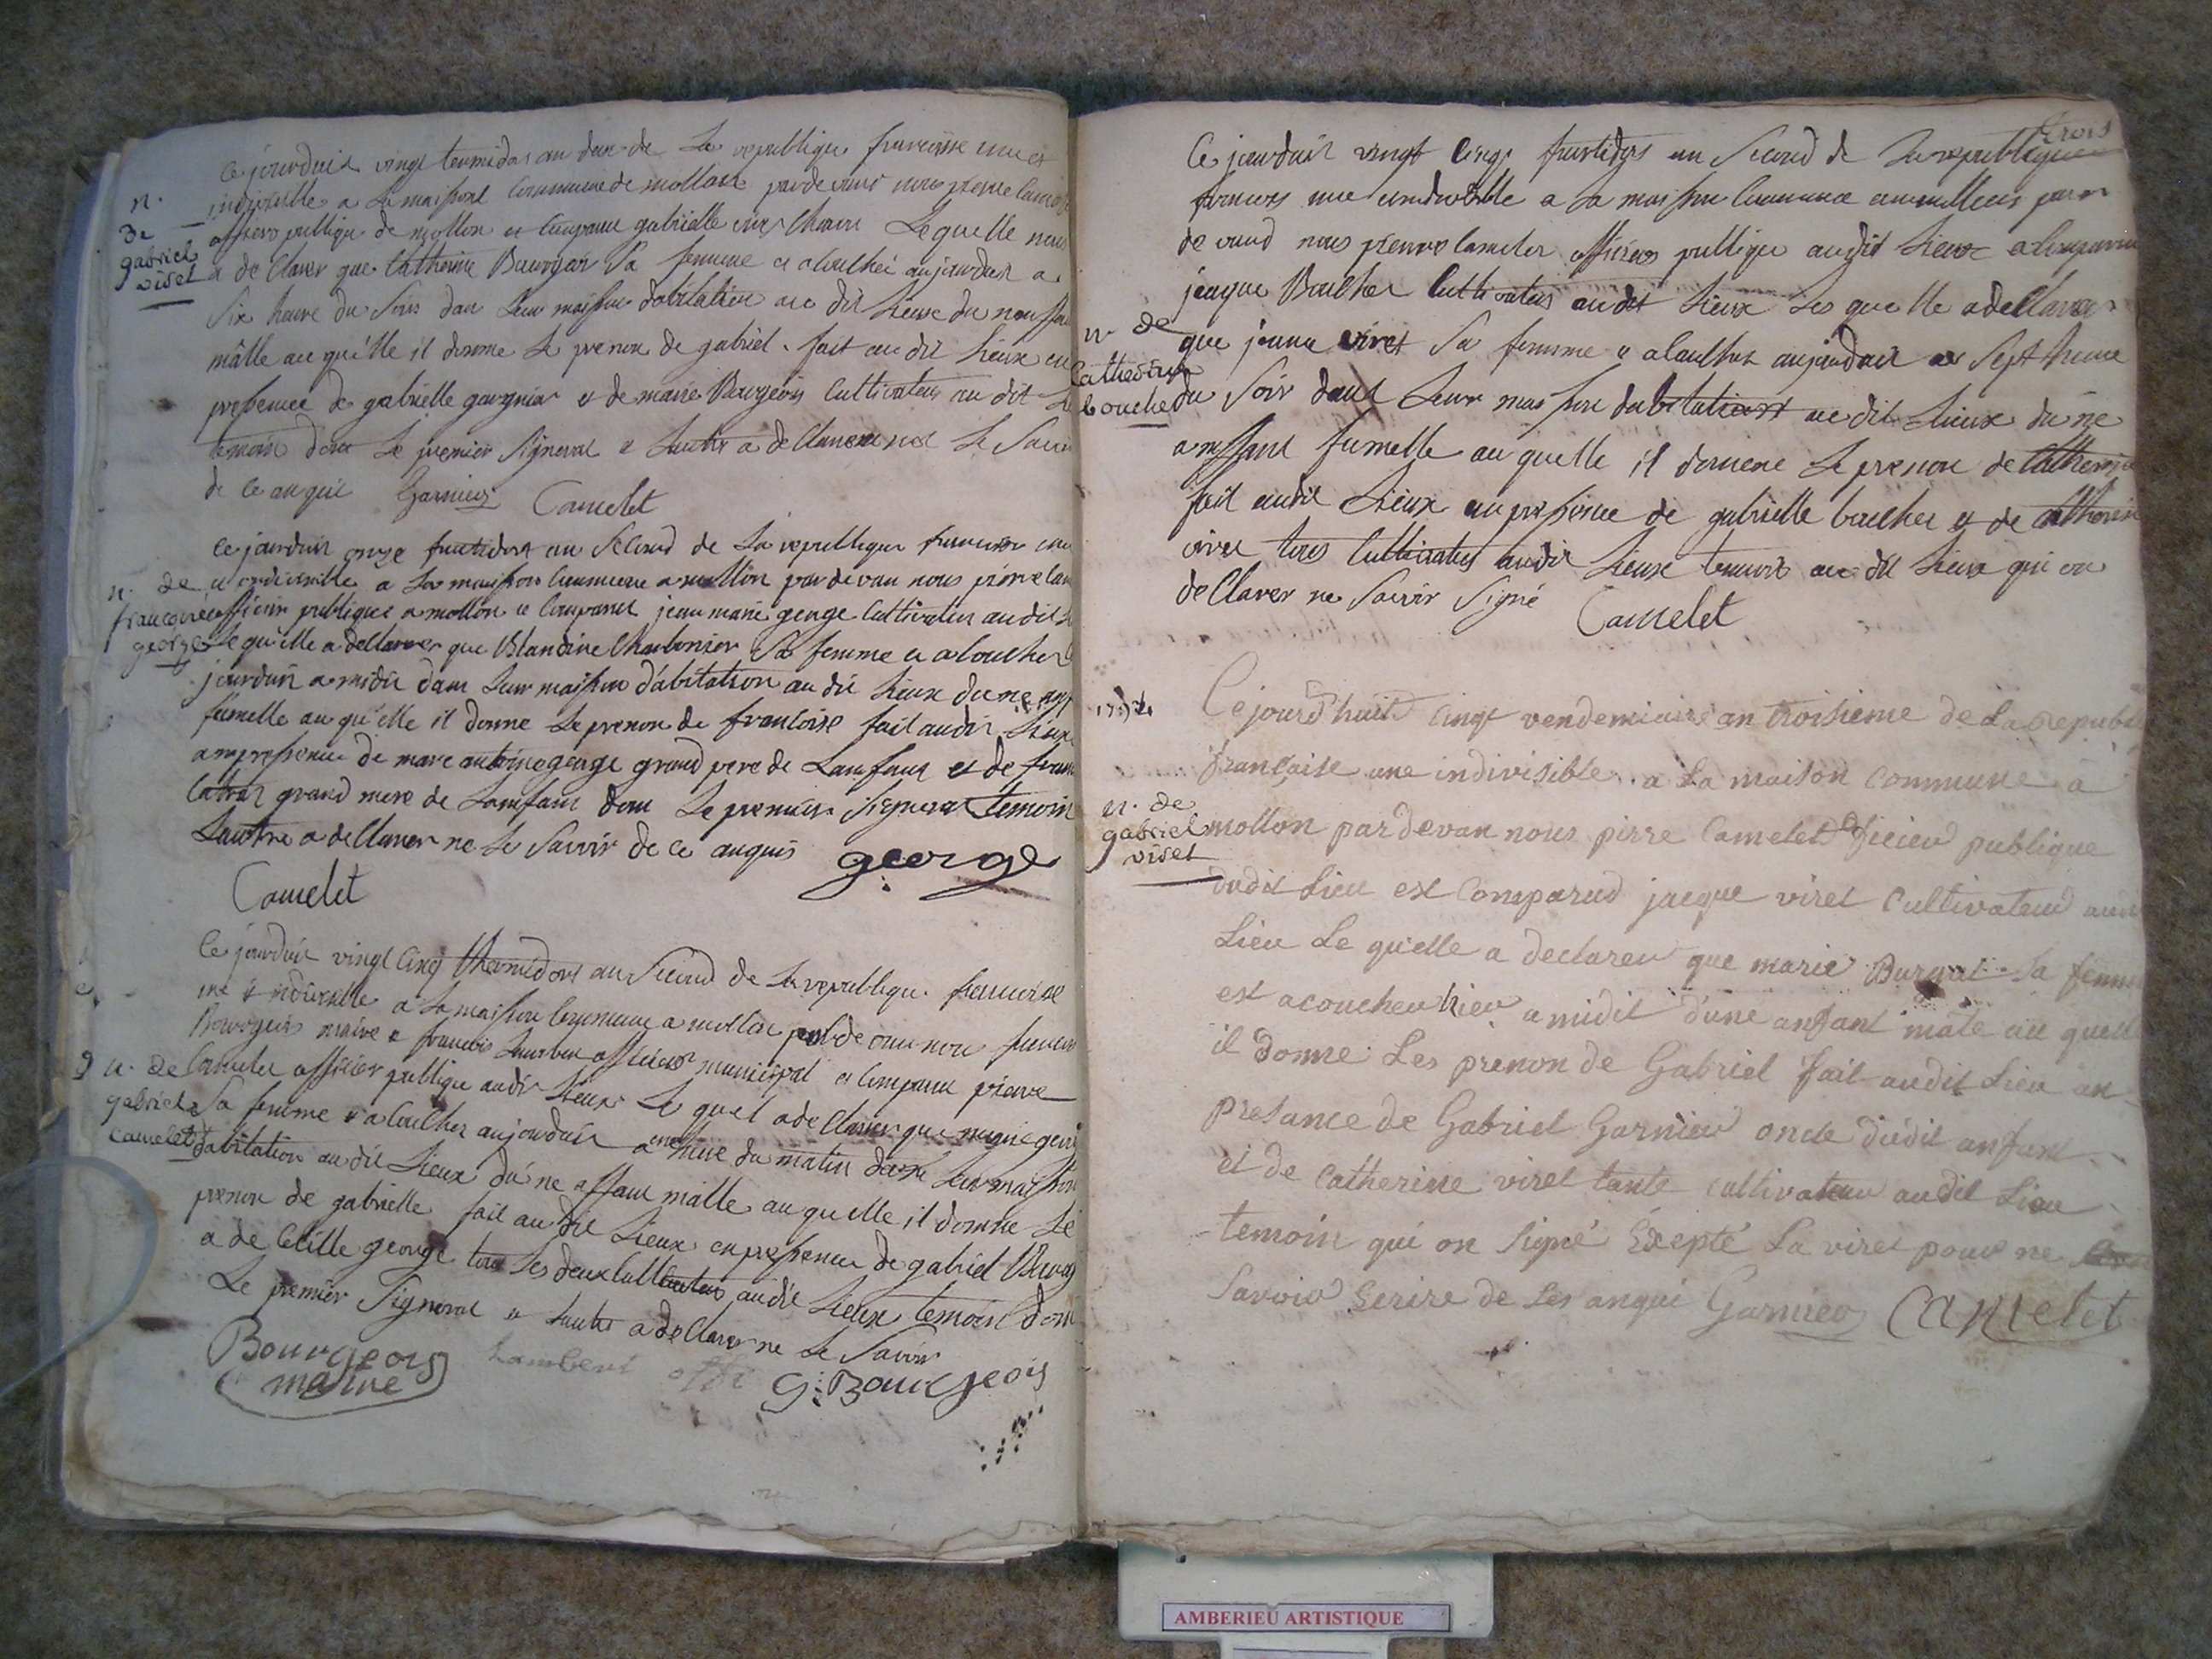 ce jourduit vingt termidor an deux de La republique francoisse une et
indivisible a La maison Commune de mollon pardevant nous pierre
officiers publique de mollon et Comparu gabrielle viret Charon Lequelle nous
a de Clarer que Catherine Bourgeois Sa femme a acouchée aujourduit a
Six heure du Soir dan Leur maison dabitation au dit Lieux du
mâlle au qu'elle il donne Le prenom de gabriel. fait au dit Lieux en
presence de gabrielle gargnier et de marie Bourgeois Cultivateur au dit
temoin dont Le premier Signeral et Lautre a de Clarer ne Le Savoir
de ce anquis Garnier Camelet
n.
De
gabriel
viret
ce jourduit onze fructidor an Second de La republique
et indivisible a La maison Commune a mollon pardevan nous pierre
officier publique a mollon et Comparu jean marie george Cultivateur au dit
Le qu'elle a declarer que Blandine Charbonier Sa femme et acoucher
jourduit a midit dans Leur maison d'abitation au dit Lieux du ne
fumelle au qu'elle il donne Le prenon de francoise fait au dit Lieux
ampresence de marc antoine george grand pere de Lanfant et de
grand mere de Lanfant dont Le premier Signeral temoin
Lautre a de Clarer ne Le Savoir de ce anquis george
Camelet
n. de
francoise
george
Ce jourduit vingt Cinq thermidor an Second de La republique francoise
une et indivisible a La maison Commune a mollon par de vant nous
Bourgeois maire et francois Lambert officier municipal et Comparu pierre
Camelet officier publique au dit Lieux Le quel a de Clarer que
Sa femme et acoucher aujourduit a une heure du matin dans Leur maison
dabitation au dit Lieux du ne affant malle au quelle il donne Le
prenon de gabrielle fait au dit Lieux en presence de gabriel
a de Cecille george tous Les deux Cultivateur au dit Lieux temoin dont
Le premier Signeral et Lautre a de Clarer ne Le Savoir
Bourgeois Lambert G: Bourgeois
maire
9 n. de
gabriel
Camelet
trois
Ce jourduit vingt Cinq fructidor an Second de La republique
une indivisible a La maison Commune a mollon par
de vand nous pierre Camelet officier publique au dit Lieux a Comparu
jacque Boucher Cultivateur au dit Lieux Les quelle a de Clarer
que jeanne viret Sa femme et acoucher aujourduit a Sept heure
du Soir dans Leur maison dabitation au dit Lieux du ne
anffant fumelle au quelle il donne Le prenon de Catherine
fait au dit Lieux au presence de gabrielle boucher et de Catherine
viret tous Cultivateur au dit Lieux temoin au dit Lieux qui on
de Clarer ne Savoir Signé Camelet
n de
Catherine
bouche
Ce jourd'huit Cingt vendemiaire an troisieme de La republ
française une indivisible a La maison Commune a
mollon pardevan nous pirre Camelet officier publique
audit Lieu est Comparud jacque viret Cultivateur audit
Lieu Le qu'elle a declarer que marie Sa femme
est acoucher hier a midit d'une anfant mâle au quell
il donne Les prenon de Gabriel fait audit Lieu en
presance de Gabriel Garnier oncle dudit anfant
et de Catherine viret tante Cultivateur audit Lieu
temoin qui on signé Exepté La viret pour ne
Savoir Serire de Les anqui Garnier Camelet
n. de
gabriel
viret
AMBERIEU ARTISTIQUE